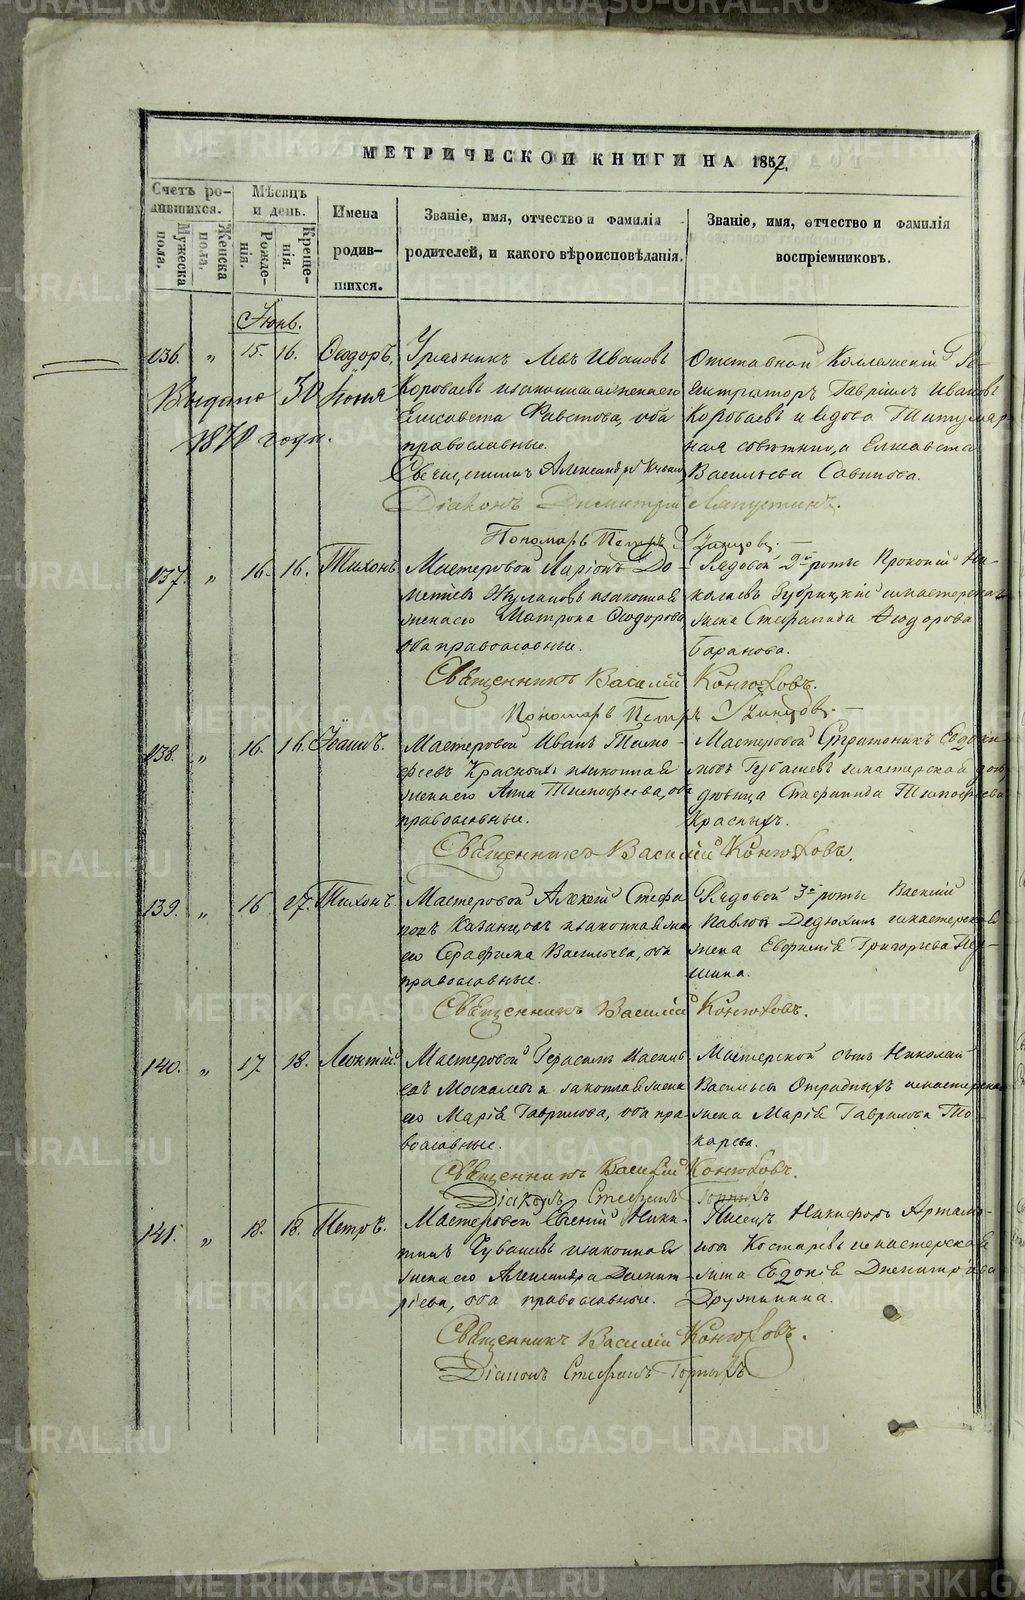 МЕТРИЧЕСКОЙ КНИГИ НА 1857.
Счетъ ро-
дившихся.
Мѣсяцъ
и день.
Мужеска
пола.
Женска
пола.
Рожде-
нія.
Креще-
нія.
Имена
родив-
шихся.
Званіе, имя, отчество и фамилія
родителей, и какого вѣроисповѣданія.
Званіе, имя, отчество и фамилія
воспріемниковъ.
Іюнь.
136. " 15. 16. Ѳеодоръ.
Выдано 30 Іюня
1870 года.
Урядникъ Левъ Ивановъ
Коробаевъ и законная жена его
Елисавета Фавстова, оба
православные.
Отставной Коллежскій Ре-
гистраторъ Гавріилъ Ивановъ
Коробаевъ и вдова Титуляр
ная совѣтница Елисавета
Васильева Савинова.
Священникъ Александръ
Діаконъ Димитрій Ляпустинъ.
Пономарь Петръ
137. " 16. 16. Тихонъ
Мастеровой Ларіонъ До-
метіевъ и законная
жена его Матрона Ѳеодорова
оба православные.
Рядовой 2й роты Прокопій Ни-
колаевъ и мастерская
жена Стефанида Ѳеодорова
Баранова.
Священникъ Василій Конюховъ.
Пономарь Петръ
138. " 16. 16. Іоаннъ.
Мастеровой Иванъ Тимо-
феевъ Красныхъ и законная
жена его Анна Тимофеева, оба
православные.
Мастеровой Стратоникъ Евдоки
мовъ и мастерская до
дѣвица Стефанида Тимофеева
Красныхъ.
Священникъ Василій Конюховъ.
139. " 16 27. Тихонъ.
Мастеровой Алексій Стефа
новъ Казанцовъ и законная жена
его Серафима Васильева, оба
православные.
Рядовой 3й роты Василій
Павловъ Дедюхинъ и мастерская
жена Евфимія Григорьева
шина.
Священникъ Василій Конюховъ.
140. " 17 18. Леонтій
Мастеровой Герасимъ Василь
евъ Москалевъ и законная жена
его Марія Гаврилова, оба пра
вославные.
Мастерской сынъ Николай
Васильевъ Отрадныхъ и мастерская
жена Марія Гаврилова То-
карева.
Священникъ Василій Конюховъ.
Діаконъ Стефанъ Горныхъ
141. " 18. 18. Петръ.
Мастеровой Евгеній Ники-
тинъ Чувашевъ и законная
жена его Александра Димит-
ріева, оба православные.
Писецъ Никифоръ Артамо-
новъ Костаревъ и мастерская
жена Евдокія Димитріева
Дружинина.
Священникъ Василій Конюховъ.
Діаконъ Стефанъ Горныхъ
METRIKI.GASO-URAL.RU